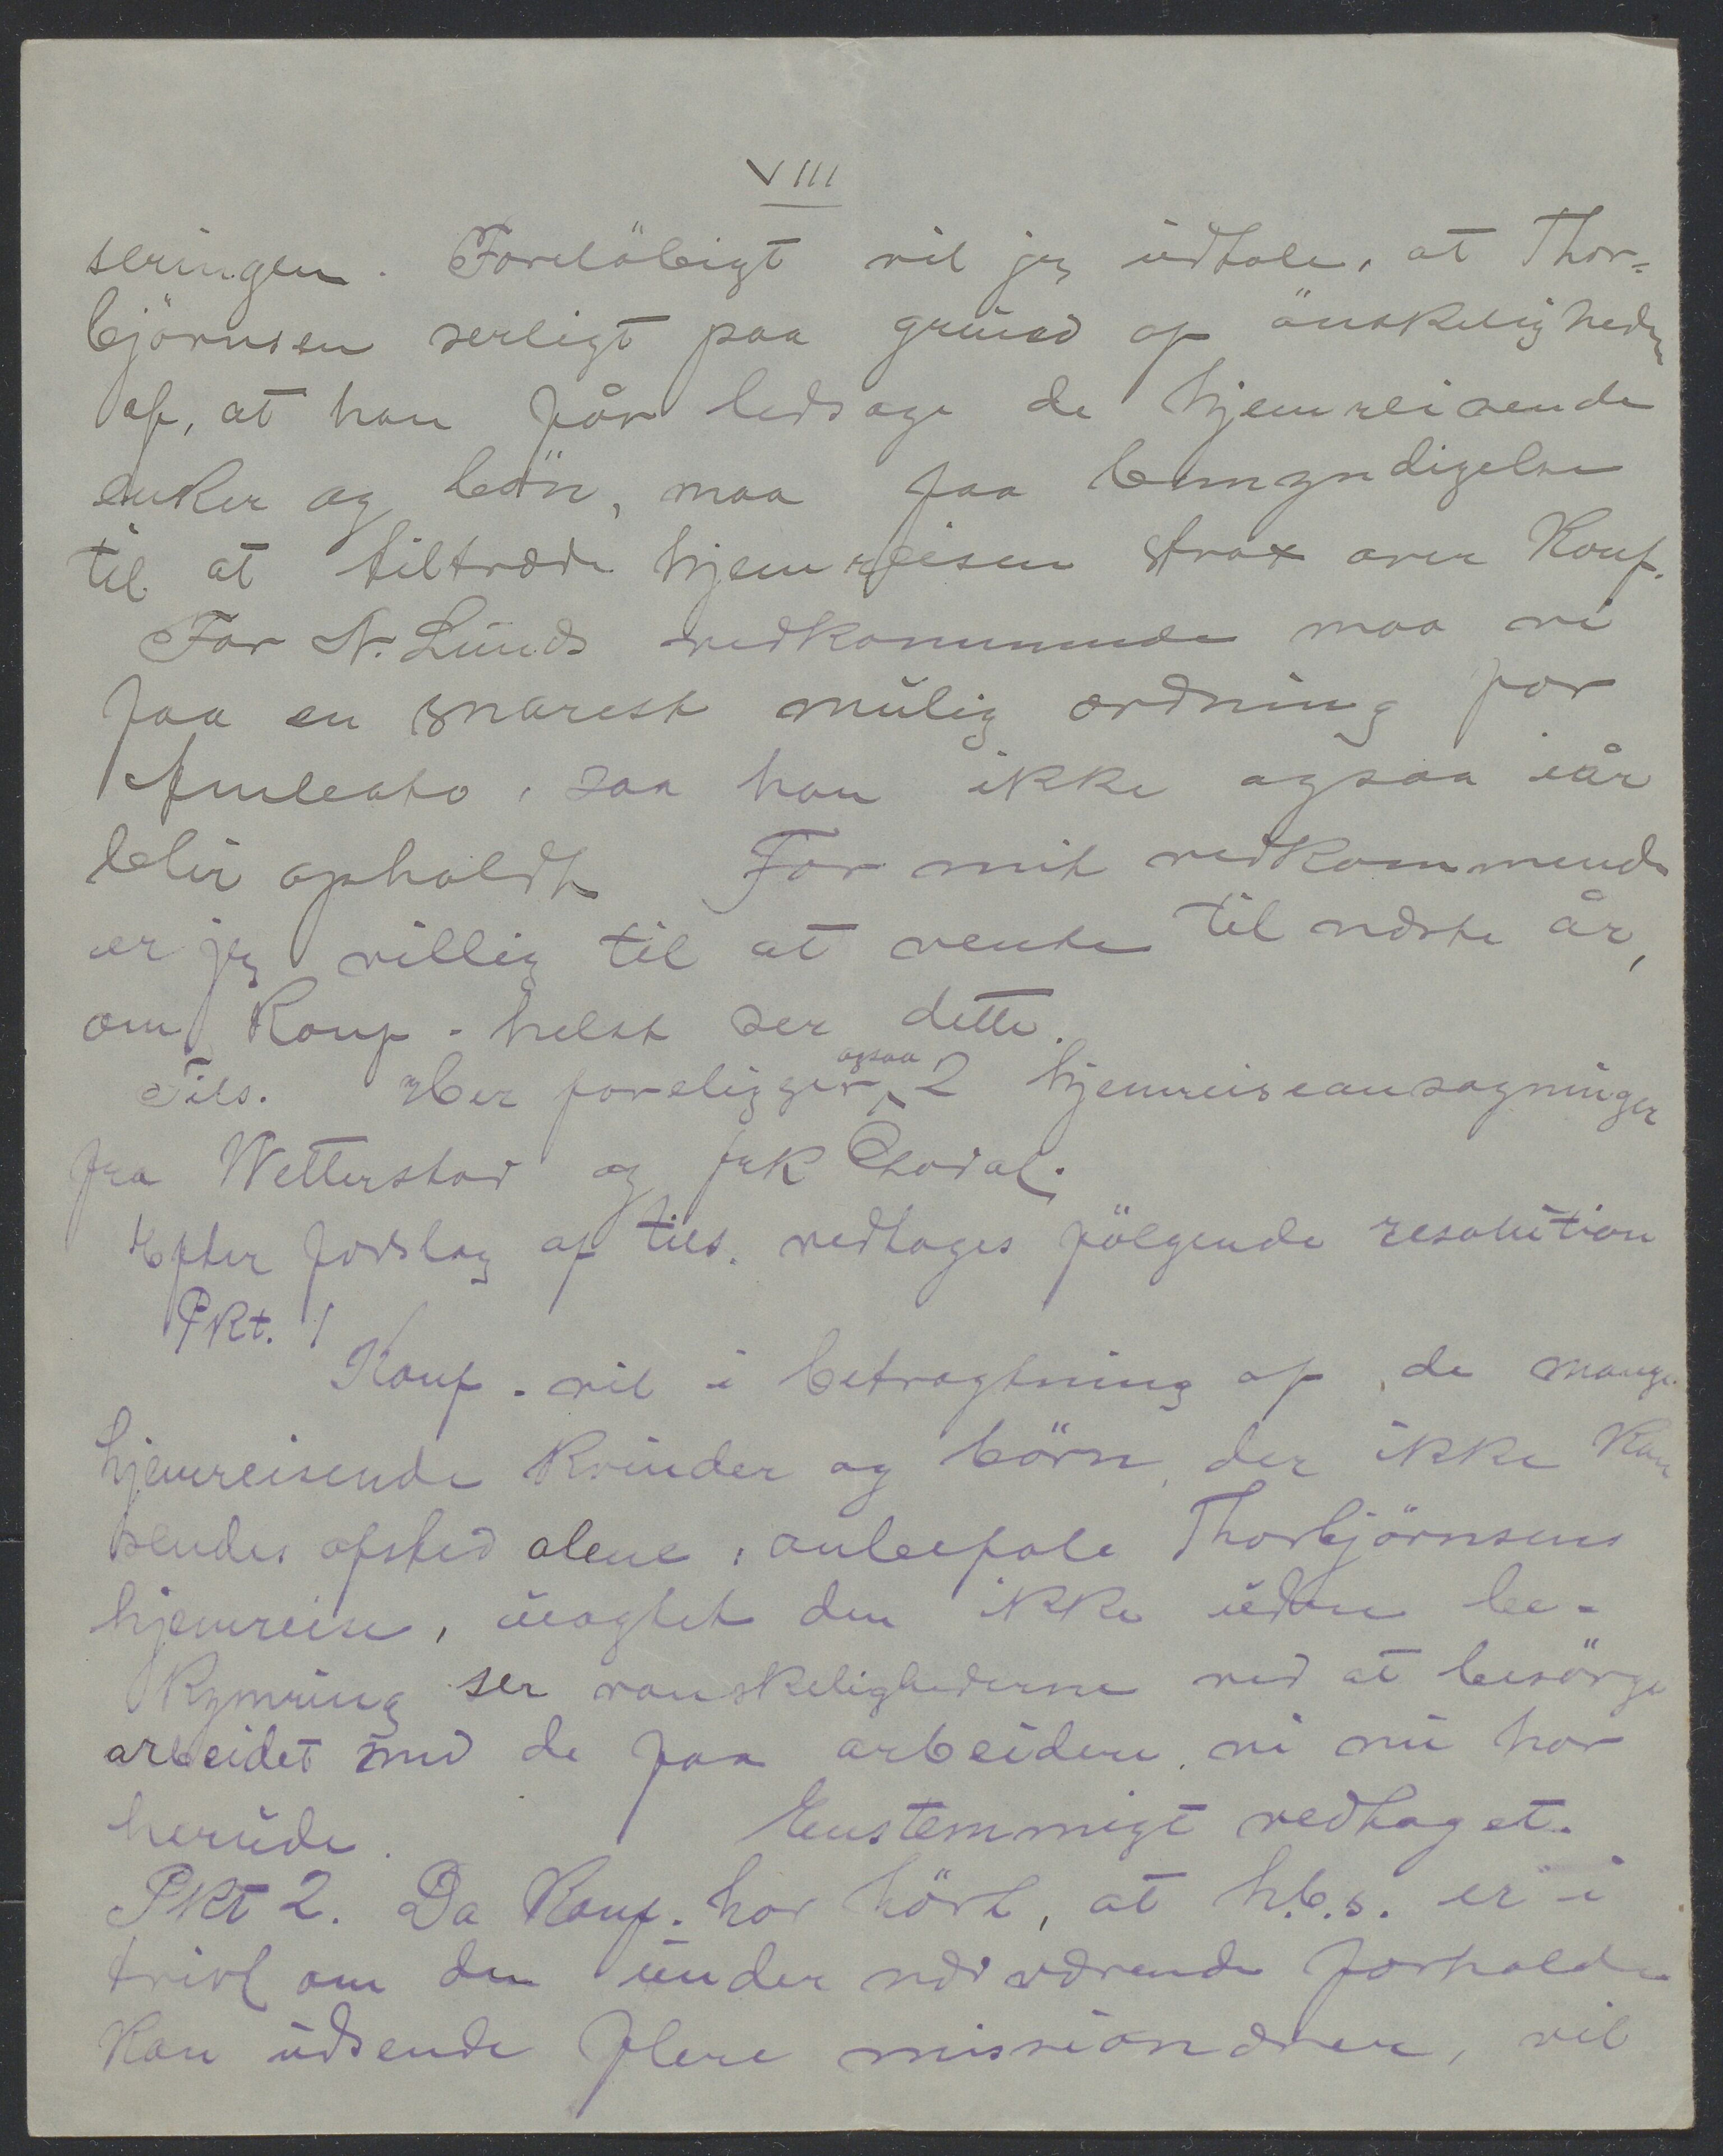 VIII
seringen. Foreløbigt vil jeg udtale, at Thor-
björnsen serligt paa grund af önskeligheden
af, at han får ledsage de hjemreisende
enker og börn, maa faa bemyndigelse
til at tiltræde hjemreisen strax over Konf.
For N. Lunds vedkommende maa vi
faa en snarest mulig ordning for
saa han ikke ogsaa iår
blir opholdt For mit vedkommende
er jeg villig til at vente til næste år,
om Konf. helst ser dette.
Tils. Her foreligger ogsaa 2 hjemreiseansøgninger
fra Wetterstad og frk
Efter forslag af tils. vedtages fölgende resolution
Pkt. 1
Konf. vil i betragtning af de mange
hjemreisende kvinder og börn, der ikke kan
sendes afsted alene, anbefale Thorbjörnsens
hjemreise, uagtet den ikke uden be-
kymring ser vanskelighederne ved at besörge
arbeidet med de faa arbeidere, vi nu har
herude. Enstemmigt vedtaget.
Pkt 2. Da Konf. har hört, at h.b.s. er i
tvivl om den under nærværende forholde
kan udsende flere missionærer, vil